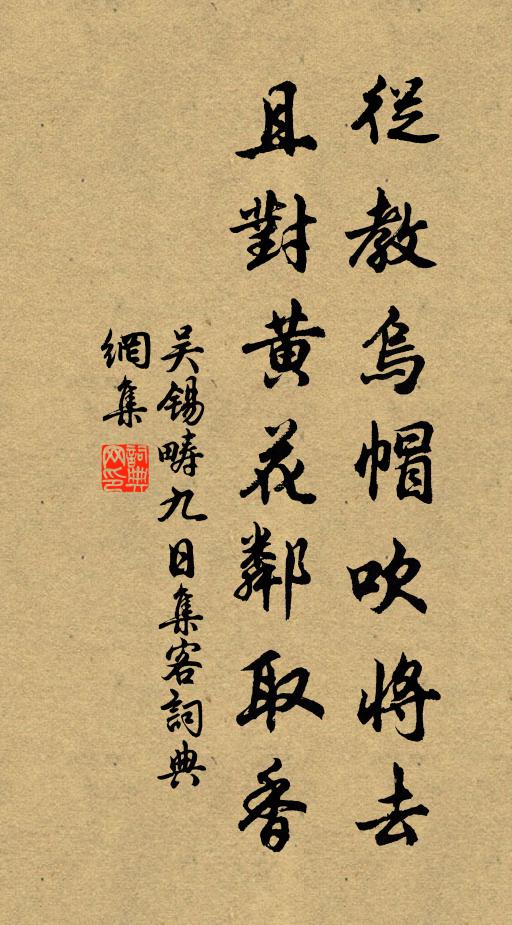 從教烏帽吹將去
且對黃花鄰取香
吳錫疇九日集客詞典
網集
詞典網印